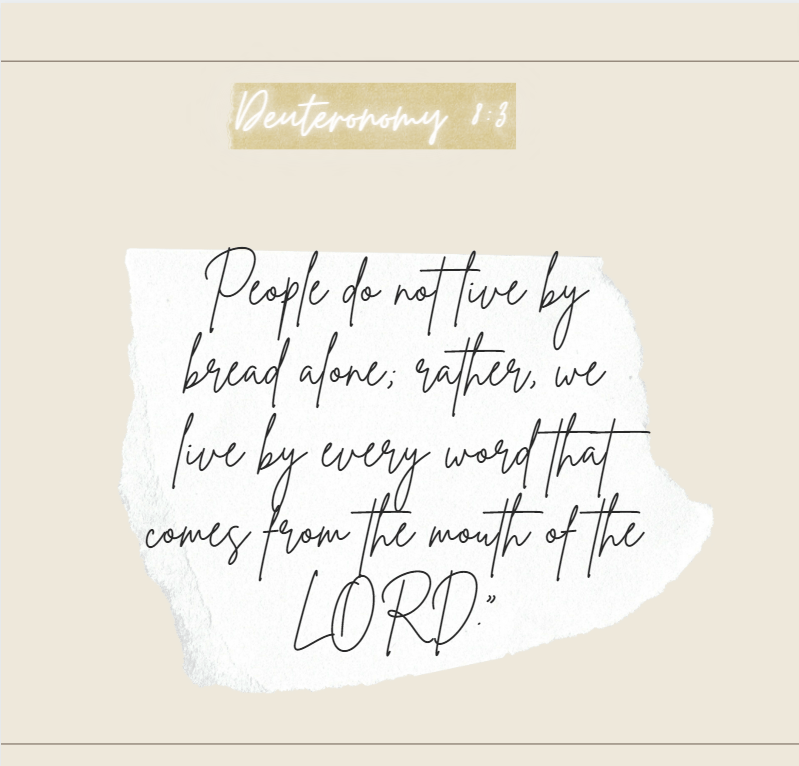 Deuteronomy 8:3
People do not live by
bread alone; rather, we
live by every word that
comes from the mouth of the
LORD.”